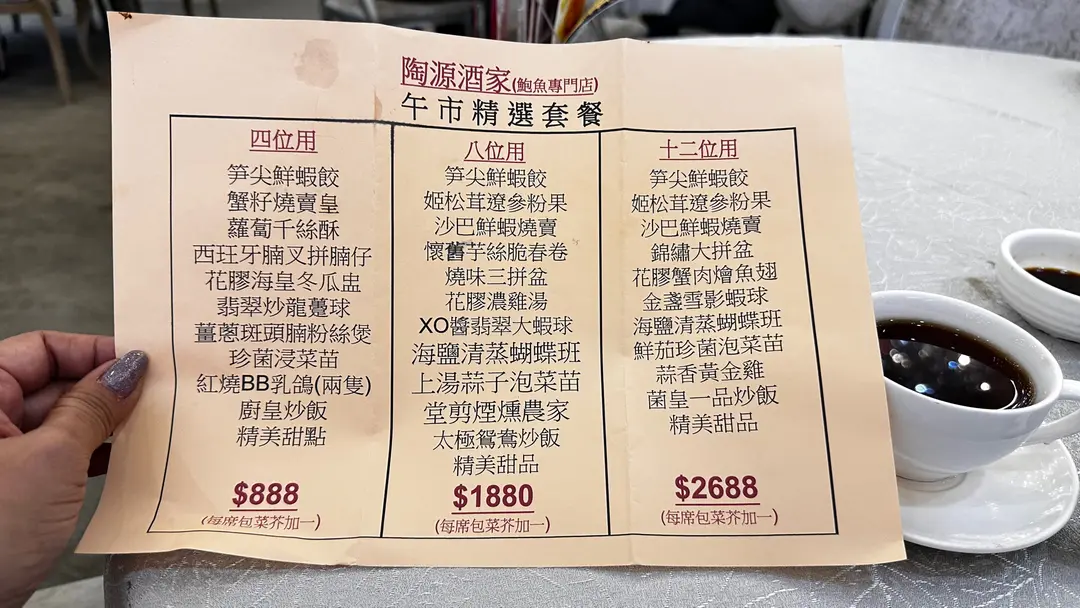 陶源酒家(鮑魚專門店)
午市精選套餐
四位用
笋尖鮮蝦餃
蟹籽燒賣皇
蘿蔔千絲酥
西班牙腩叉拼腩仔
花膠海皇冬瓜盅
翡翠炒龍躉球
薑蔥斑頭腩粉絲煲
珍菌浸菜苗
紅燒BB乳鴿(兩隻)
廚皇炒飯
精美甜點
$888
(每席包菜芥加一)
八位用
笋尖鮮蝦餃
姬松茸遼參粉果
沙巴鮮蝦燒賣
懷舊芋絲脆春卷
燒味三拼盆
花膠濃雞湯
XO醬翡翠大蝦球
海鹽清蒸蝴蝶班
上湯蒜子泡菜苗
堂剪煙燻農家
太極鴛鴦炒飯
精美甜品
$1880
(每席包菜芥加一)
十二位用
笋尖鮮蝦餃
姬松茸遼參粉果
沙巴鮮蝦燒賣
錦繡大拼盆
花膠蟹肉燴魚翅
金盞雪影蝦球
海鹽清蒸蝴蝶班
鮮茄珍菌泡菜苗
蒜香黃金雞
菌皇一品炒飯
精美甜品
$2688
(每席包菜芥加一)